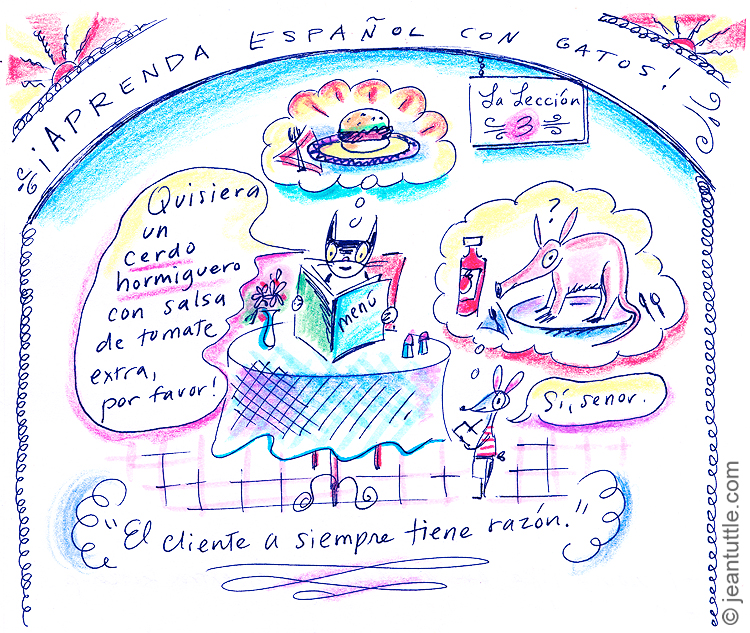 ¡APRENDA ESPAÑOL CON GATOS!
La Lección
3
Quisiera
un
cerdo
hormiguero
con salsa
de tomate
extra,
por favor!
menú
?
Sí, senor.
"El cliente a siempre tiene razón."
© jeantuttle.com